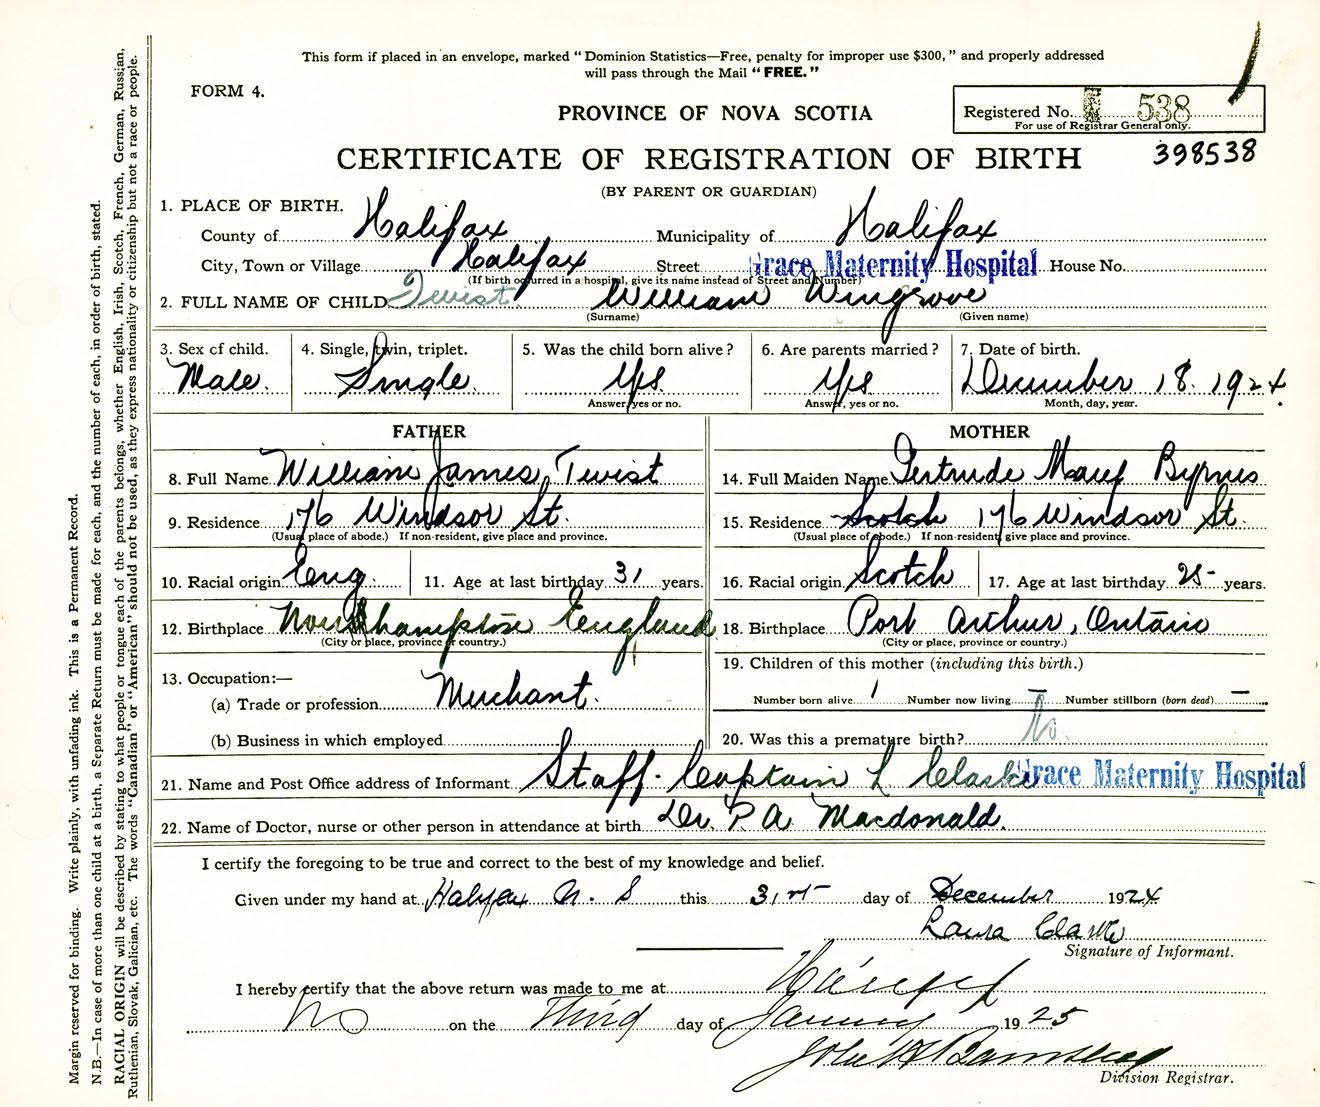 This form if placed in an envelope, marked "Dominion Statistics—Free, penalty for improper use $300," and properly addressed
will pass through the Mail "FREE."
FORM 4.
PROVINCE OF NOVA SCOTIA
Registered No. 538
For use of Registrar General only.
398538
CERTIFICATE OF REGISTRATION OF BIRTH
(BY PARENT OR GUARDIAN)
1. PLACE OF BIRTH.
County of Halifax Municipality of Halifax
City, Town or Village Halifax Street Grace Maternity Hospital House No.
(If birth occurred in a hospital, give its name instead of Street and Number)
2. FULL NAME OF CHILD Twist William Wingrove
(Surname) (Given name)
3. Sex of child. 4. Single, twin, triplet. 5. Was the child born alive? 6. Are parents married? 7. Date of birth.
Male. Single. Yes Yes December 18. 1924.
Answer yes or no. Answer, yes or no. Month, day, year.
FATHER MOTHER
8. Full Name William James Twist 14. Full Maiden Name Gertrude Mary Byrnes
9. Residence 176 Windsor St. 15. Residence Scotch 176 Windsor St.
(Usual place of abode.) If non-resident, give place and province. (Usual place of abode.) If non-resident, give place and province.
10. Racial origin Eng. 11. Age at last birthday 31 years. 16. Racial origin Scotch 17. Age at last birthday 25 years.
12. Birthplace Northampton England 18. Birthplace Port Arthur, Ontario
(City or place, province or country.) (City or place, province or country.)
19. Children of this mother (including this birth.)
13. Occupation:—
(a) Trade or profession Merchant. Number born alive 1 Number now living — Number stillborn (born dead) —
(b) Business in which employed 20. Was this a premature birth? No.
21. Name and Post Office address of Informant Staff. Captain L Clarke Grace Maternity Hospital
22. Name of Doctor, nurse or other person in attendance at birth Dr. P. A. Macdonald.
I certify the foregoing to be true and correct to the best of my knowledge and belief.
Given under my hand at Halifax N. S this 31st day of December 1924
Laura Clarke
Signature of Informant.
I hereby certify that the above return was made to me at Halifax
NS on the Third day of January 1925
Division Registrar.
Margin reserved for binding. Write plainly, with unfading ink. This is a Permanent Record.
N.B.—In case of more than one child at a birth, a Separate Return must be made for each, and the number of each, in order of birth, stated.
RACIAL ORIGIN will be described by stating to what people or tongue each of the parents belongs, whether English, Irish, Scotch, French, German, Russian,
Ruthenian, Slovak, Galician, etc. The words "Canadian" or "American" should not be used, as they express nationality or citizenship but not a race or people.